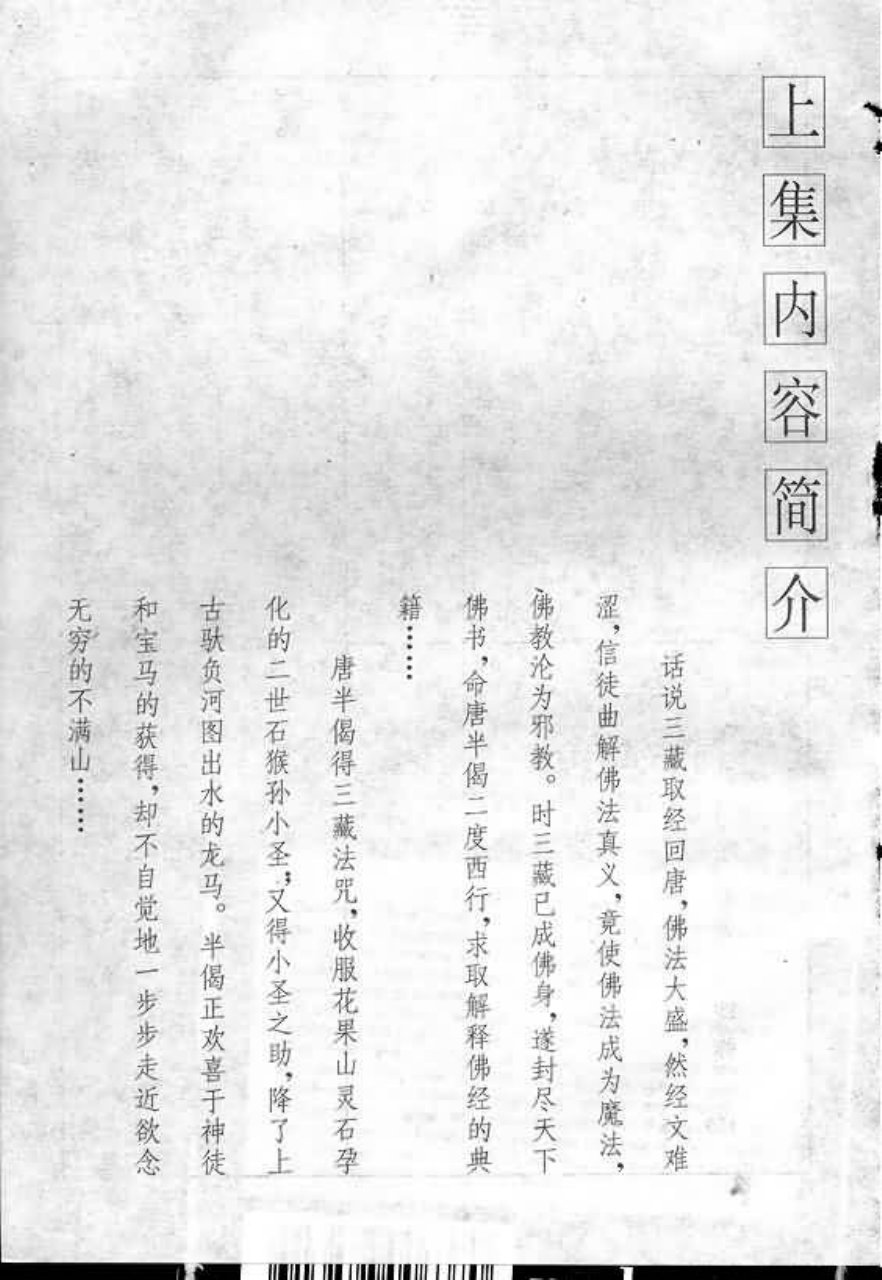 上集内容简介
话说三藏取经回唐，佛法大盛，然经文难
涩，信徒曲解佛法真义，竟使佛法成为魔法，
佛教沦为邪教。时三藏已成佛身，遂封尽天下
佛书，命唐半偈二度西行，求取解释佛经的典
籍……
唐半偈得三藏法咒，收服花果山灵石孕
化的二世石猴孙小圣；又得小圣之助，降了上
古驮负河图出水的龙马。半偈正欢喜于神徒
和宝马的获得，却不自觉地一步步走近欲念
无穷的不满山……